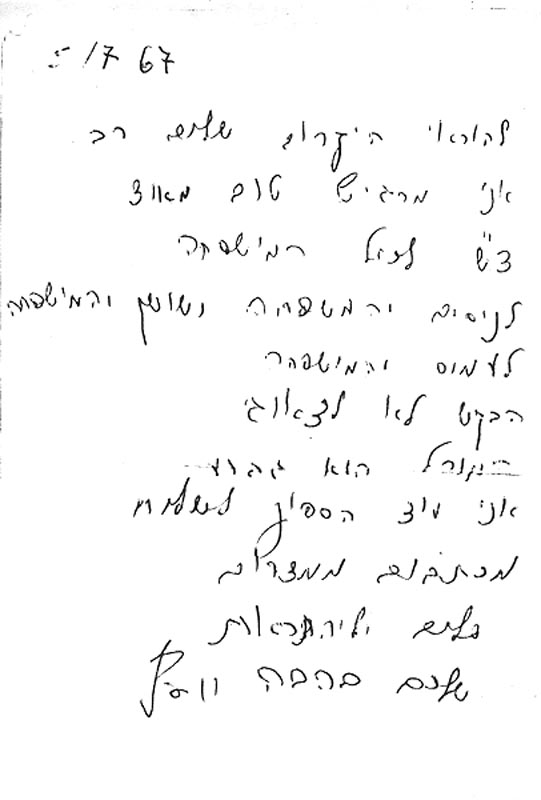 5/7 67
להוראי היקרים שלום רב
אני מרגיש טוב מאוד
ד"ש לכל המישפחה
לניסים והמשפחה ושושן והמישפחה
לעמוס והמישפחה
הבקש לא לדאוג
הוא
אני הספיק לשלוח
מכתבים ממצרים
שלום ולהתראות
שלכם בהבה